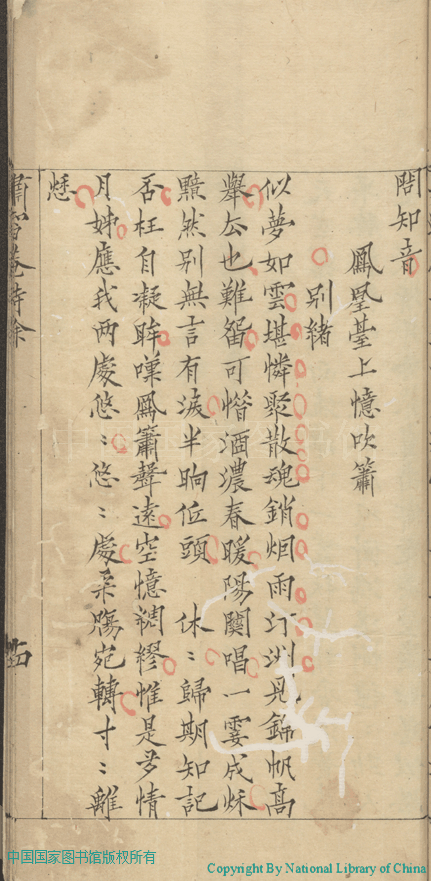 閒知音
鳳凰臺上憶吹簫
別緒
似夢如雲堪憐聚散魂銷烟雨汀洲見錦帆高
舉公也難留可惜酒濃春暖陽關唱一霎成秋
黯然別無言有淚半晌低頭 休〻歸期知記
否枉自凝眸嘆鳳簫聲遠空憶裯繆惟是多情
月姊應我两處悠〻悠〻處柔腸宛轉寸〻離
愁
中国国家图书馆版权所有
Copyright By National Library of China